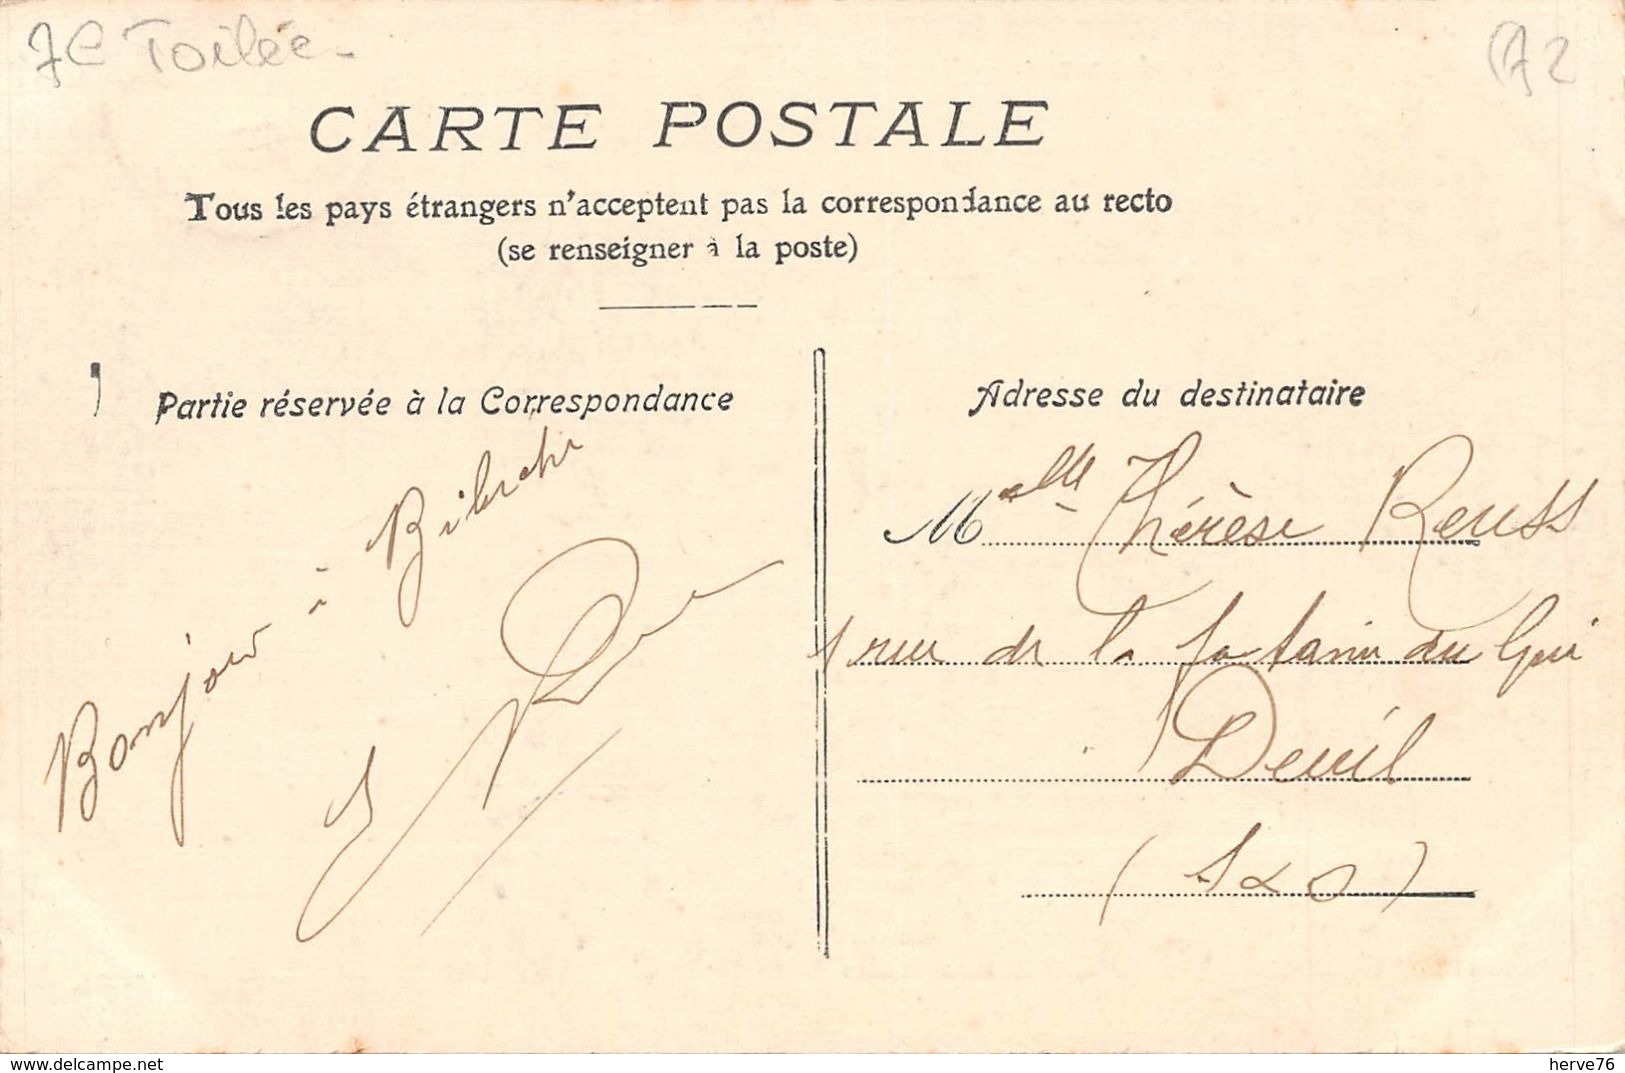 Toilée
A2
CARTE POSTALE
Tous les pays étrangers n'acceptent pas la correspondance au recto
(se renseigner à la poste)
Partie réservée à la Correspondance
Bonjour à
Adresse du destinataire
Melle Thérèse Reuss
1 rue de la fontaine du Gui
Deuil
(S & O)
delcampe.net
herve76